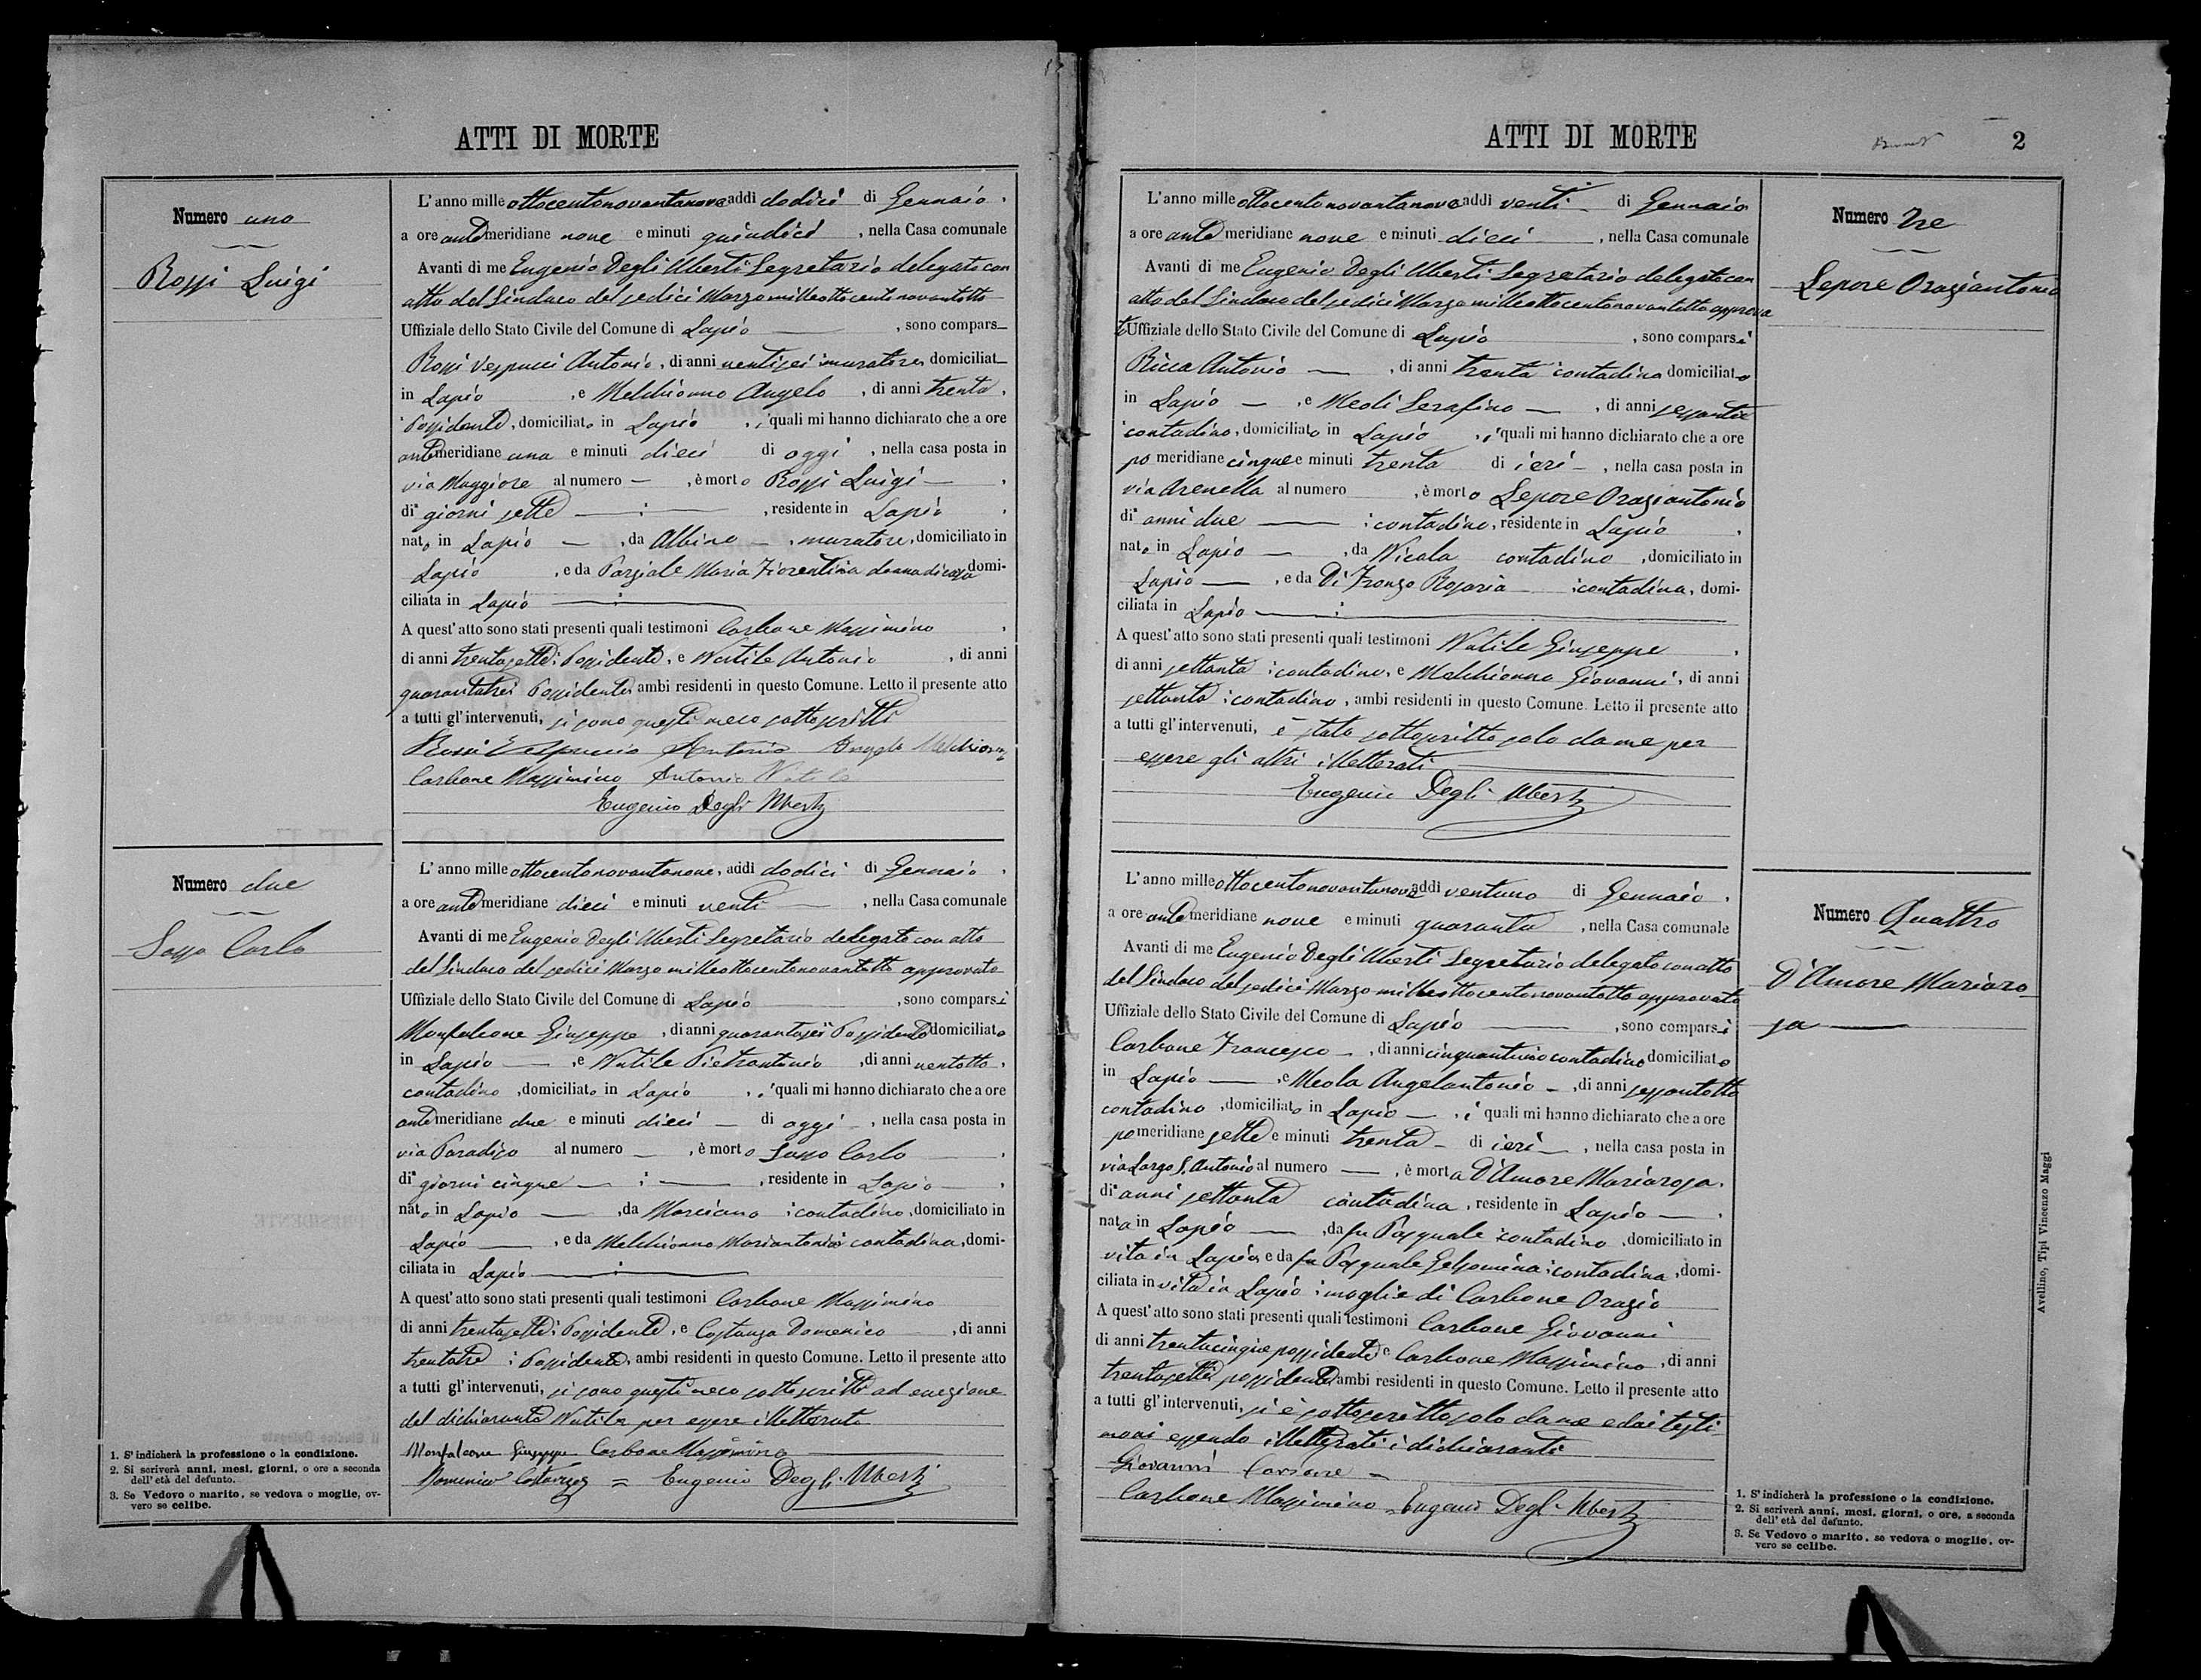 ATTI DI MORTE
Numero uno
Rossi Luigi
L'anno mille ottocentonovantanove addi dodici di Gennaio,
a ore ante meridiane nove e minuti quindici, nella Casa comunale
Avanti di me Eugenio Degli Uberti Segretario delegato con
atto del Sindaco del sedici Marzo milleottocentonovantotto
Uffiziale dello Stato Civile del Comune di Lapio —, sono compars—
Rossi Vespucci Antonio, di anni ventisei muratore, domiciliat—
in Lapio, e Melchionno Angelo, di anni trenta,
Possidente, domiciliato in Lapio, i quali mi hanno dichiarato che a ore
antemeridiane una e minuti dieci di oggi, nella casa posta in
via Maggiore al numero —, è morto Rossi Luigi —,
di giorni sette —, residente in Lapio,
nato in Lapio —, da Albino —, muratore, domiciliato in
Lapio, e da Porziale Maria Fiorentina donna di casa domi-
ciliata in Lapio —
A quest'atto sono stati presenti quali testimoni Carbone Massimino,
di anni trentasette: Possidente, e Nutile Antonio, di anni
quarantatrei Possidente, ambi residenti in questo Comune. Letto il presente atto
a tutti gl'intervenuti, si sono questi meco sottoscritti
Rossi Vespuccio Antonio Angelo Melchionn
Carbone Massimino Antonio Nutile
Eugenio Degli Uberti
Numero due
Sasso Carlo
L'anno mille ottocentonovantanove, addi dodici di Gennaio,
a ore ante meridiane dieci e minuti venti —, nella Casa comunale
Avanti di me Eugenio Degli Uberti Segretario delegato con atto
del Sindaco del sedici Marzo milleottocentonovantotto approvato
Uffiziale dello Stato Civile del Comune di Lapio —, sono comparsi
Monfalcone Giuseppe, di anni quarantasei Possidente domiciliato
in Lapio —, e Nutile Pietrantonio, di anni ventotto,
contadino, domiciliato in Lapio, i quali mi hanno dichiarato che a ore
antemeridiane due e minuti dieci — di oggi —, nella casa posta in
via Paradiso al numero —, è morto Sasso Carlo —,
di giorni cinque —, residente in Lapio —,
nato in Lapio —, da Marciano: contadino, domiciliato in
Lapio —, e da Melchionno Mariantonia: contadina, domi-
ciliata in Lapio —
A quest'atto sono stati presenti quali testimoni Carbone Massimino
di anni trentasette: Possidente, e Costanza Domenico —, di anni
trentatre: Possidente, ambi residenti in questo Comune. Letto il presente atto
a tutti gl'intervenuti, si sono questi meco sottoscritti ad eccezione
del dichiarante Nutile per essere illetterato
Monfalcone Giuseppe Carbone Massimino
Domenico Costanza = Eugenio Degli Uberti
1. S'indicherà la professione o la condizione.
2. Si scriverà anni, mesi, giorni, o ore a seconda
dell'età del defunto.
3. Se Vedovo o marito, se vedova o moglie, ov-
vero se celibe.
ATTI DI MORTE
2
Numero Tre
Lepore Oraziantonio
L'anno mille ottocentonovantanove addi venti — di Gennaio
a ore ante meridiane nove e minuti dieci —, nella Casa comunale
Avanti di me Eugenio Degli Uberti Segretario delegato con
atto del Sindaco del sedici Marzo milleottocentonovantotto approva
to Uffiziale dello Stato Civile del Comune di Lapio, sono comparsi
Ricca Antonio —, di anni trenta contadino domiciliato
in Lapio —, e Meoli Serafino —, di anni sessanta
contadino, domiciliato in Lapio, i quali mi hanno dichiarato che a ore
po meridiane cinque e minuti trenta di ieri —, nella casa posta in
via Arenella al numero, è morto Lepore Oraziantonio
di anni due —: contadino, residente in Lapio,
nato in Lapio —, da Nicola contadino, domiciliato in
Lapio —, e da Di Fronzo Rosaria: contadina, domi-
ciliata in Lapio —
A quest'atto sono stati presenti quali testimoni Nutile Giuseppe,
di anni settanta: contadino, e Melchionno Giovanni, di anni
settanta: contadino, ambi residenti in questo Comune. Letto il presente atto
a tutti gl'intervenuti, è stato sottoscritto solo da me per
essere gli altri illetterati
Eugenio Degli Uberti
Numero Quattro
D'Amore Mariaro
sa —
L'anno mille ottocentonovantanove addi ventuno di Gennaio,
a ore ante meridiane nove e minuti quaranta, nella Casa comunale
Avanti di me Eugenio Degli Uberti Segretario delegato con atto
del Sindaco del sedici Marzo milleottocentonovantotto approvato
Uffiziale dello Stato Civile del Comune di Lapio —, sono comparsi
Carbone Francesco —, di anni cinquantuno contadino domiciliato
in Lapio —, e Meola Angelantonio —, di anni sessantotto
contadino, domiciliato in Lapio —, i quali mi hanno dichiarato che a ore
pomeridiane sette e minuti trenta — di ieri —, nella casa posta in
via Largo S. Antonio al numero —, è morta D'Amore Mariarosa,
di anni settanta contadina, residente in Lapio —,
nata in Lapio —, da fu Pasquale contadino, domiciliato in
vita in Lapio, e da fu Pasquale Gelsomina: contadina, domi-
ciliata in vita in Lapio: moglie di Carbone Orazio
A quest'atto sono stati presenti quali testimoni Carbone Giovanni
di anni trentacinque possidente e Carbone Massimino, di anni
trentasette possidente ambi residenti in questo Comune. Letto il presente atto
a tutti gl'intervenuti, si è sottoscritto solo da me e dai testi-
moni essendo illetterati i dichiaranti
Giovanni Carbone —
Carbone Massimino = Eugenio Degli Uberti
1. S'indicherà la professione o la condizione.
2. Si scriverà anni, mesi, giorni, o ore, a seconda
dell'età del defunto.
3. Se Vedovo o marito, se vedova o moglie, ov-
vero se celibe.
Avellino, Tipi Vincenzo Maggi